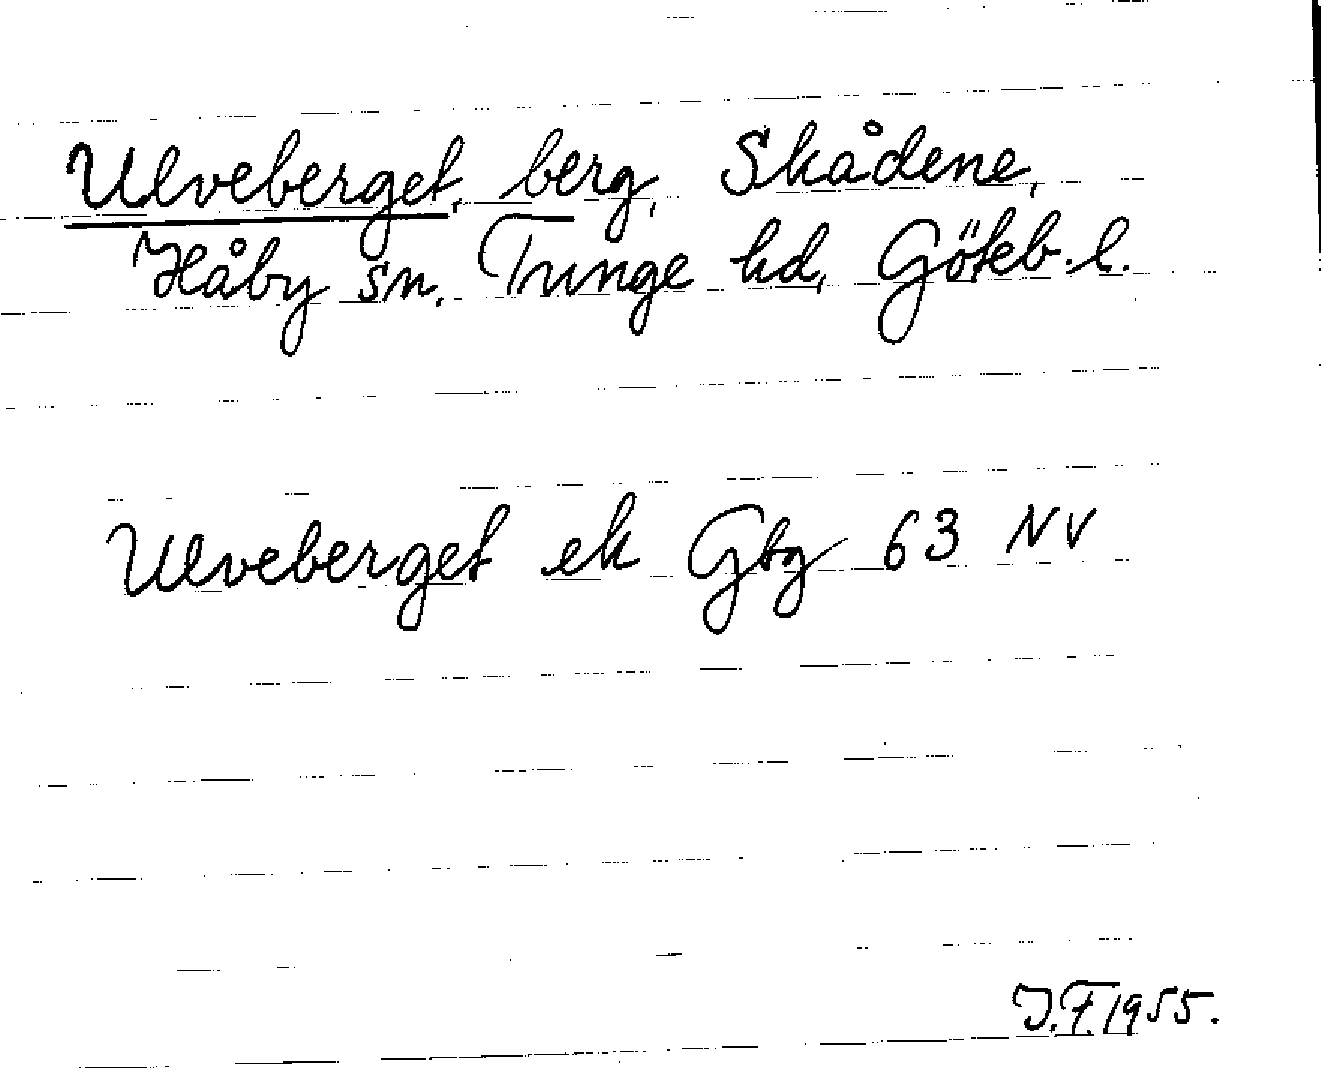 Ulveberget, berg, Skådene,
Håby sn. Tunge hd, Göteb. l.
Ulveberget ek Gbg 63 NV
J.F. 1955.